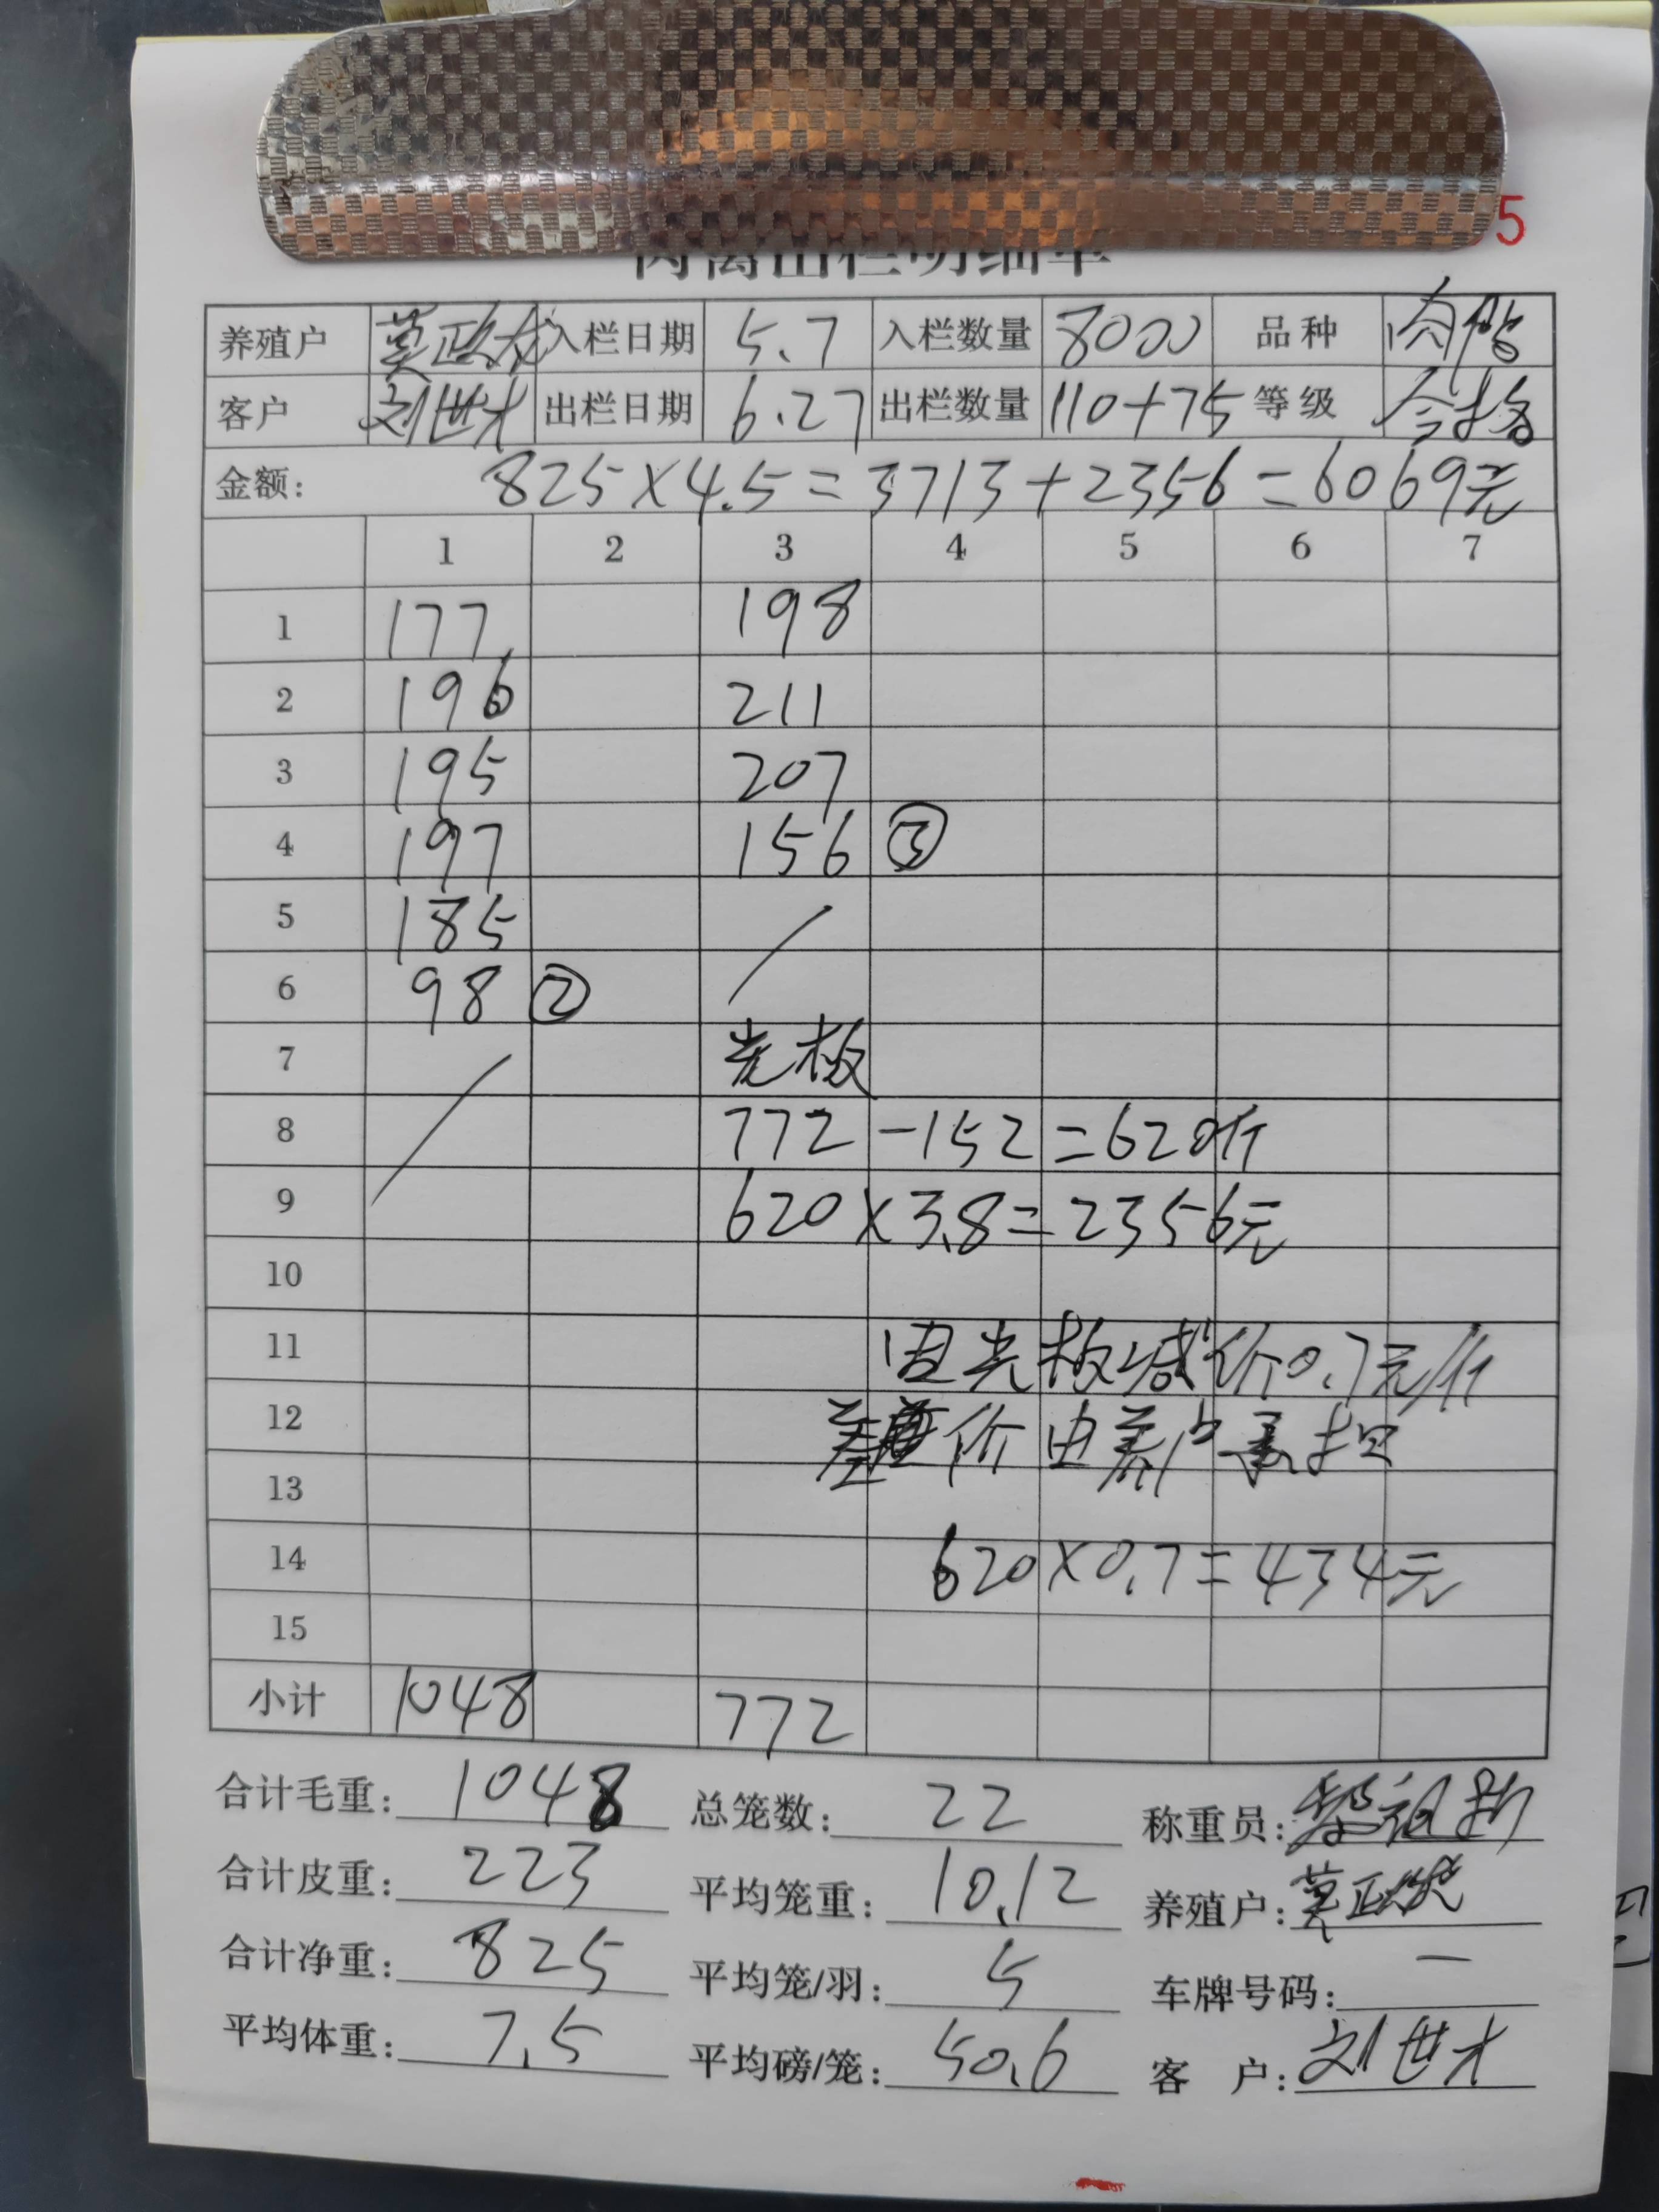 5
肉禽出栏明细单
养殖户 莫政龙 入栏日期 5.7 入栏数量 8000 品种 肉鸭
客户 刘世才 出栏日期 6.27 出栏数量 110+75 等级 合格
金额: 825×4.5=3713+2356=6069元
1 2 3 4 5 6 7
1 177 198
2 196 211
3 195 207
4 197 156 ③
5 185
6 98 ②
7 光板
8 772-152=620斤
9 620×3.8=2356元
10
11 因光板减价0.7元/斤
12 差价由养户承担
13
14 620×0.7=434元
15
小计 1048 772
合计毛重: 1048 总笼数: 22 称重员:
合计皮重: 223 平均笼重: 10.12 养殖户: 莫政龙
合计净重: 825 平均笼/羽: 5 车牌号码: —
平均体重: 7.5 平均磅/笼: 50.6 客 户: 刘世才